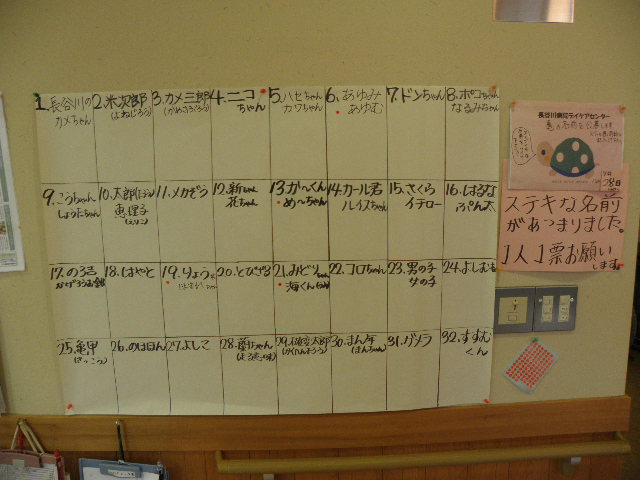 1.長谷川の
カメちゃん
2.米次郎
(よねじろう)
3.カメ三郎
(かめさぶろう)
4.ニコ
ちゃん
5.ハセちゃん
カワちゃん
6.あゆみ
あゆむ
7.ドンちゃん
8.ポコちゃん
なるみちゃん
9.こうちゃん
しょうたちゃん
10.太郎
恵理子
(えりこ)
11.メカぞう
12.新ちゃん
花ちゃん
13.か〜くん
め〜ちゃん
14.カール君
ルイスちゃん
15.さくら
イチロー
16.はるな
ぷん太
17.のろ吉
18.はやと
19.りょう
20.とぴぞう
21.みどりちゃん
海くん
22.コロちゃん
23.男の子
女の子
24.よしむね
25.亀甲
(きっこう)
26.のほほん
27.よしこ
28.
29.
30.まん年
(まんちゃん)
31.ガメラ
32.すすむ
くん
長谷川病院デイケアセンター
亀の名前を公募します
ステキな名前
があつまりました。
1人1票お願い
します。